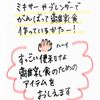 ミキサーやブレンダーで
がんばって離乳食
作っているかたー!
ハーイ
すっごい便利な
離乳食のための
アイテムを
おしえます